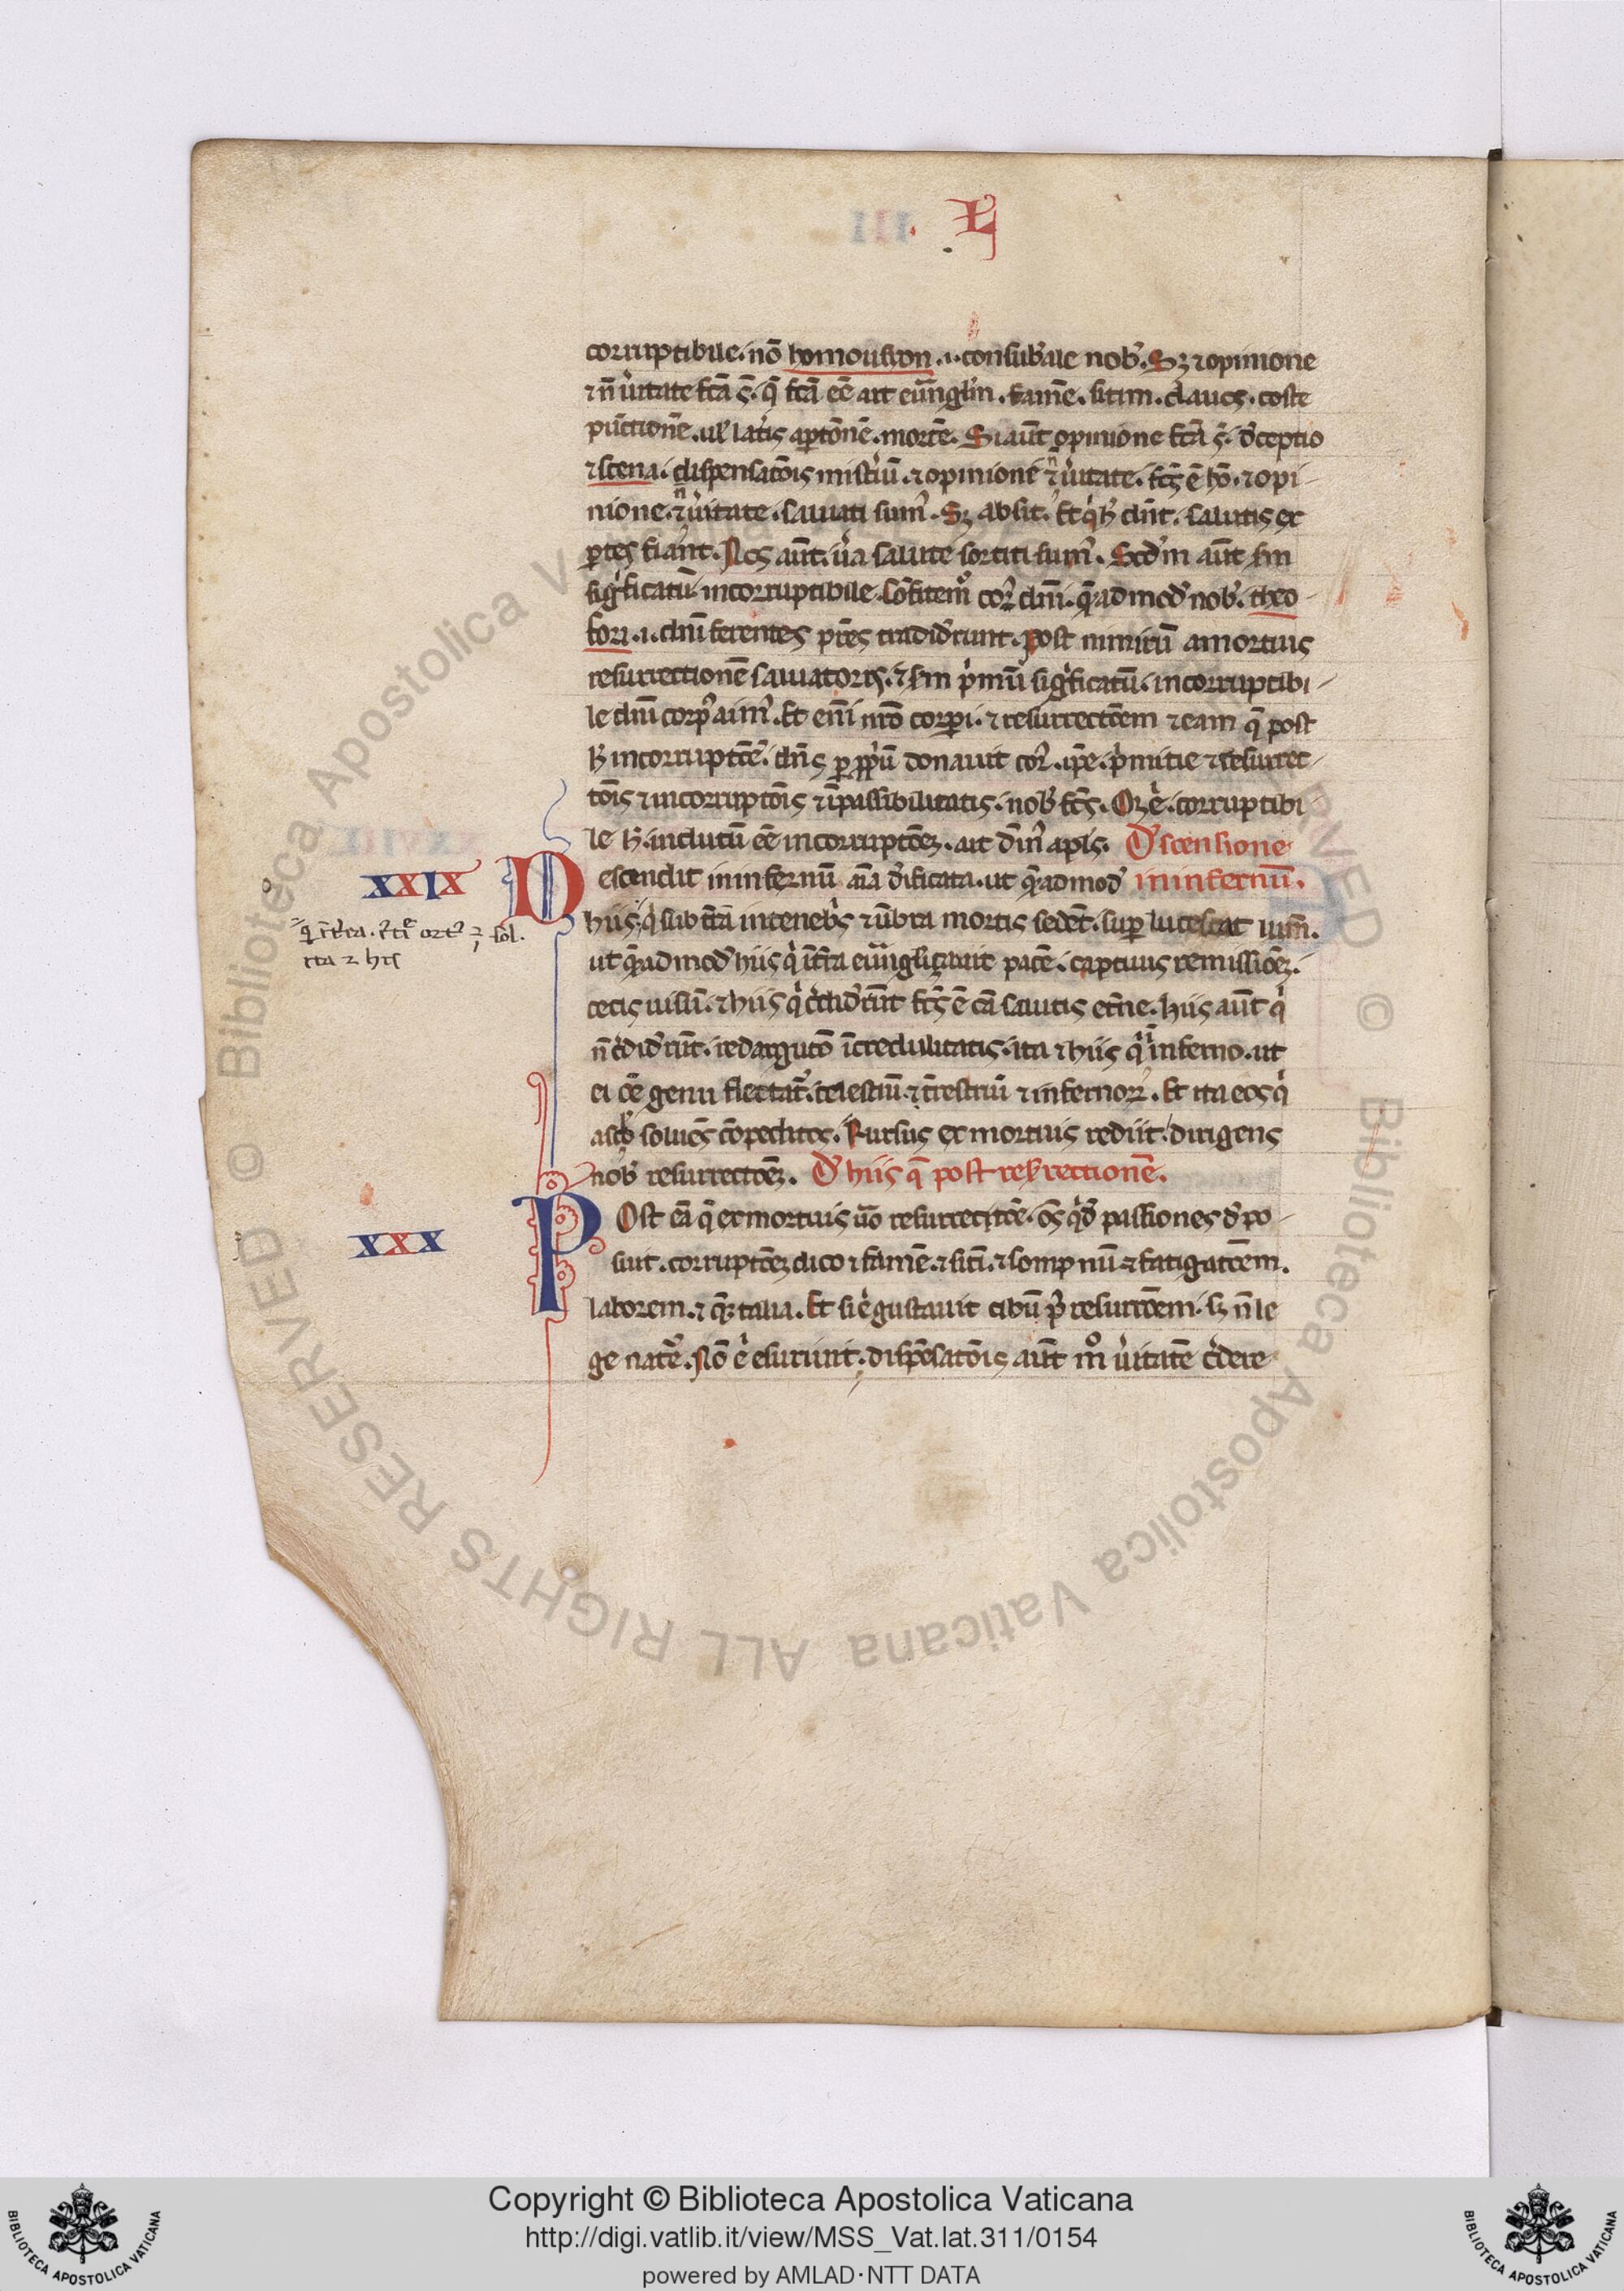 L
corruptibile. nō homousion .i. consub'ale nob'. Sꝫ ⁊ opinione
⁊ ñ ũitate fc̃a s̃. q̃ fc̃a eē ait euñgłm. famē. sitim. clauos. coste
pũctionē. ul' lat'is aptōnē. mortē. Si aũt opinione fc̃a s̃. d'ceptio
⁊ scena. dispensatōis mist'iũ. ⁊ opinione ⁊ ñ ũitate. fc̃s ē hō. ⁊ opi-
nione. ⁊ ñ ũitate. saluati sum'. Sꝫ absit. Et q' h' dñt. salutis ex
ptes fiãnt. Nos aũt. ũa salute sortiti sum'. Scd'm aũt sm
sig'ficatũ incorruptibile. cōfitem' cor' dñi. q̃ admod' nob'. theo
fori .i. dñi ferentes pr̃es tradid'runt. Post nimirũ a mortuis
resurrectionē saluatoris. ⁊ sm p'mũ sig'ficatũ. incorruptibi-
le dñi corp' aim'. Et eni nr̃o corpi. ⁊ resurrectōem ⁊ eam q̃ post
h' incorruptōē. dñs p pp'ũ donauit cor'. ip̃e. p'mitie ⁊ resurrec-
tōis ⁊ incorruptōis ⁊ ĩpassibilitatis. nob' fc̃s. Oꝫ ē. corruptibi
le h'. indutũ eē incorruptōeꝫ. ait diñ' apl's. D' scensione
XXIX
Descendit in infernũ aĩa d'ificata. ut q̃ admod' in infernum.
hiis. q' sub t'ra in teneb'is ⁊ ũbra mortis sedēt. sup lucescat lum̃.
ita ⁊ his
ut q̃ admod' hiis q' ĩ t'ra euãngliꝫauit pacē. captiuis remissiōeꝫ.
cecis uisũ. ⁊ hiis q' c'did'rũt fc̃s ē cã salutis et'ne. hiis aũt q'
ñ c'did'rũt. redargutō ĩcredulitatis. ita ⁊ hiis q' ĩ inferno. ut
ei oē genu flectat'. celestiũ. ⁊ t'restriũ ⁊ infernoꝝ. Et ita eos q'
a sc'lo soluēs cōpeditos. Rursus ex mortuis rediit. dirigens
nob' resurrectōeꝫ. D' hiis q̃ post resurrectionē.
XXX
Post eã q̃ ex mortuis ũo resurrectōē. oēs q'd' passiones d'po-
suit. corruptōeꝫ dico ⁊ famē. ⁊ sitĩ. ⁊ sompnũ ⁊ fatigatōem.
laborem. ⁊ q̃ꝫ talia. Et si ē gustauit cibũ p' resurrōem. sꝫ ñ le
ge nat'e. Nō ē esuriuit. dispēsatōis aũt mō ũitatē c'dere
Copyright © Biblioteca Apostolica Vaticana
http://digi.vatlib.it/view/MSS_Vat.lat.311/0154
powered by AMLAD·NTT DATA